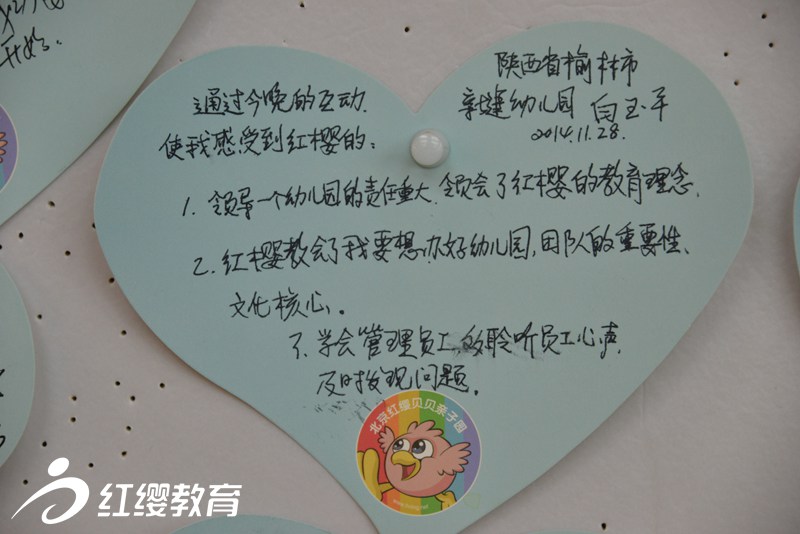 开始.
陕西省榆林市
新建幼儿园 白玉平
2014.11.28.
通过今晚的互动.
使我感受到红樱的:
1. 领导一个幼儿园的责任重大.领会了红樱的教育理念.
2. 红樱教会了我要想办好幼儿园,团队的重要性、
文化核心。
3. 学会管理员工.多聆听员工心声.
及时发现问题。
北京红缨贝贝亲子园
红缨教育